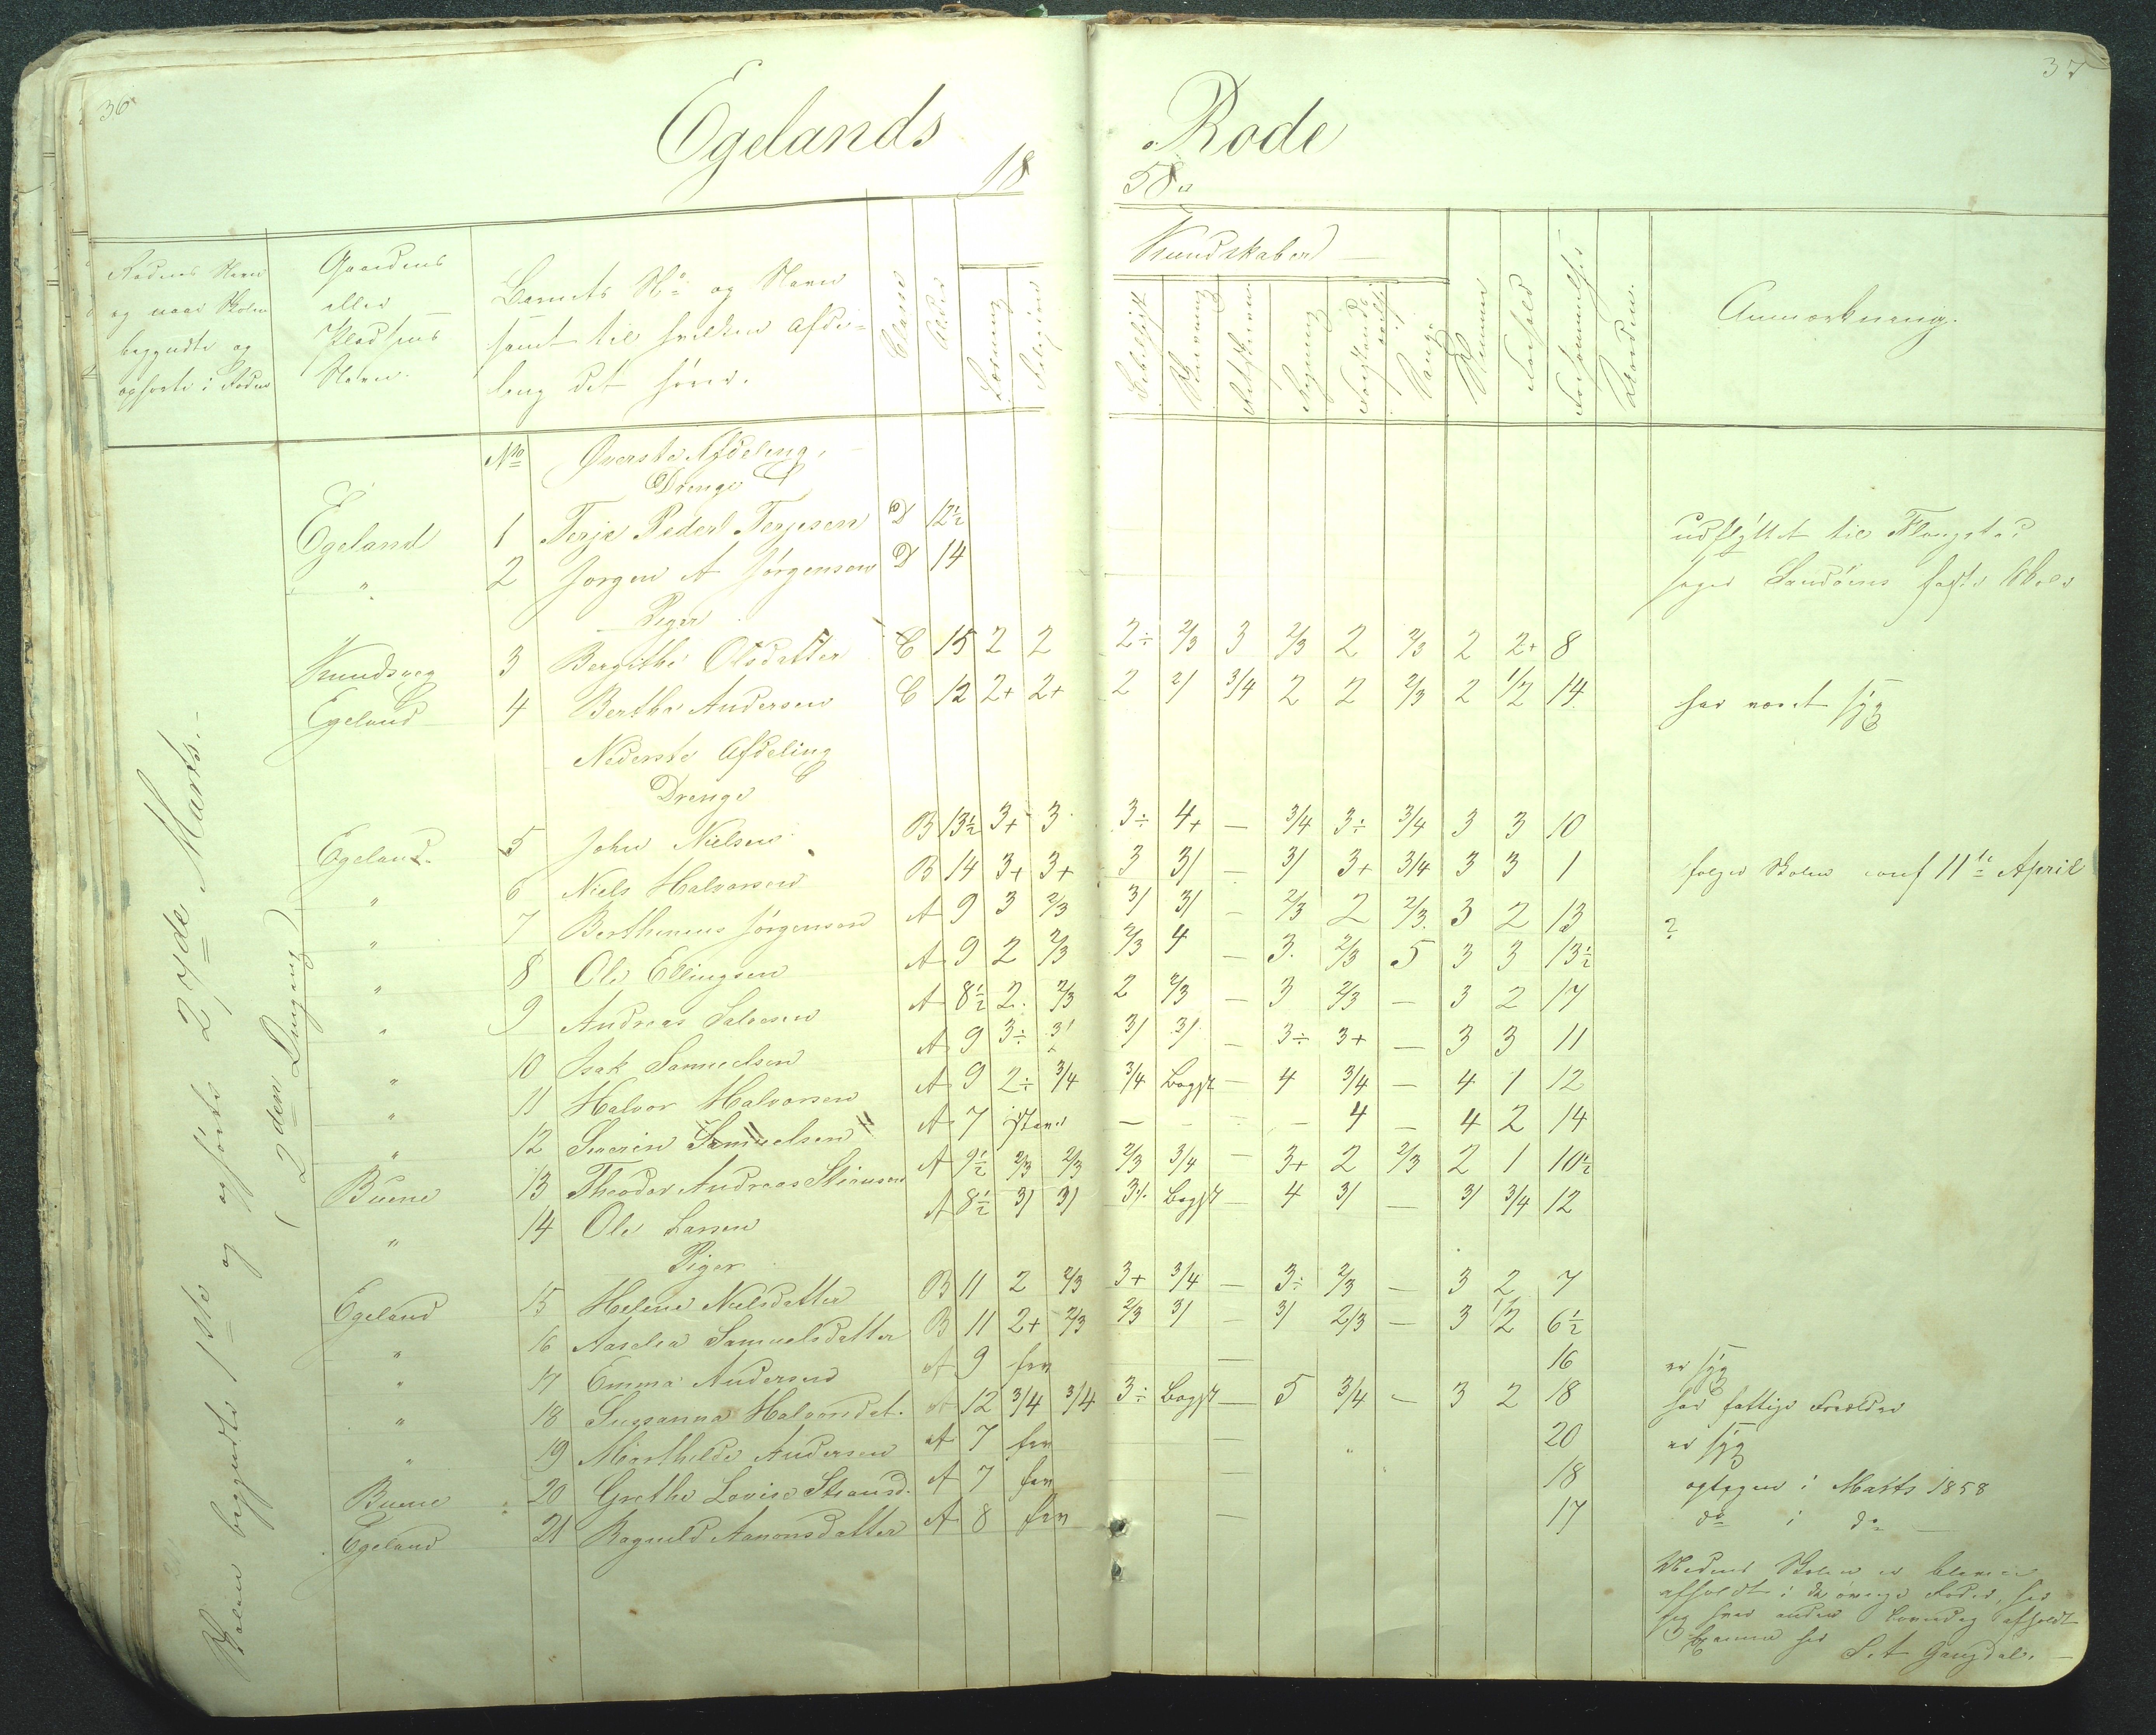 36
37
Egelands Rode
1858.
Rodens Navn og naar Skolen begyndte og ophørte i Roden
Gaardens eller Pladsens Navn.
Barnets No og Navn samt til hvilken Afdeling det hører.
Classe
Alder
Kundskaber
Læsning
Religion
Skrivning
Retskrivn.
Regning
Sang.
Forhold
Forsømmelser
Anmærkning.
Skolen begyndte 1ste og ophørte 27de Marts.
(2den Omgang)
No Øverste Afdeling.
Drenge
Egeland 1 Terje Peder Terjesen D 12½ udflyttet til
" 2 Jørgen A Jørgensen D 14 søger Sandøens faste Skole
Piger
3 Bergithe Olsdatter C 15 2 2 2÷ 2/3 3 2/3 2 2/3 2 2+ 8
Egeland 4 Berthe Andersen C 12 2+ 2+ 2 2/ 3/4 2 2 2/3 2 1/2 14 har været syg
Nederste Afdeling
Drenge
Egeland. 5 John Nielsen B 13½ 3+ 3 3÷ 4+ — 3/4 3÷ 3/4 3 3 10
" 6 Niels Halvorsen B 14 3+ 3+ 3 3/ — 3/ 3+ 3/4 3 3 1 følger Skolen 11te April
" 7 Berthinius Jørgensen A 9 3 2/3 3/ 3/ — 2/3 2 2/3 3 2 13 ?
" 8 Ole Ellingsen A 9 2 2/3 2/3 4 — 3 2/3 5 3 3 13½
" 9 Andreas Salvesen A 8½ 2 2/3 2 2/3 — 3 2/3 — 3 2 17
" 10 Isak Samuelsen A 9 3÷ 3/ 3/ 3/ — 3÷ 3+ — 3 3 11
" 11 Halvor Halvorsen A 9 2÷ 3/4 3/4 Begyt — 4 3/4 — 4 1 12
" 12 Severin Samuelsen A 7 stav — — — — 4 — 4 2 14
Buene 13 Theodor Andreas A 9½ 2/3 2/3 2/3 3/4 — 3+ 2 2/3 2 1 10½
" 14 Ole Larsen A 8½ 3/ 3/ 3/ Begyt — 4 3/ — 3/ 3/4 12
Piger
Egeland 15 Helene Nielsdatter B 11 2 2/3 3+ 3/4 — 3÷ 2/3 — 3 2 7
" 16 Samuelsdatter B 11 2+ 2/3 2/3 3/ — 3/ 2/3 — 3 1/2 6½
" 17 Emma Andersen A 9 — 16 er syg
" 18 Sussanna Halvorsdat. A 12 3/4 3/4 3÷ Begyt — 5 3/4 — 3 2 18 har fattige Forældre
" 19 Marthilde Andersen A 7 — 20 er syg
Buene 20 Grethe Lovise A 7 — 18 optagen i Marts 1858
Egeland 21 Ragnild Aanonsdatter A 8 — 17 do i do —
Medens Skolen er bleven
afholdt i de øvrige Roder, har
jeg hver anden Løverdag afholdt
her